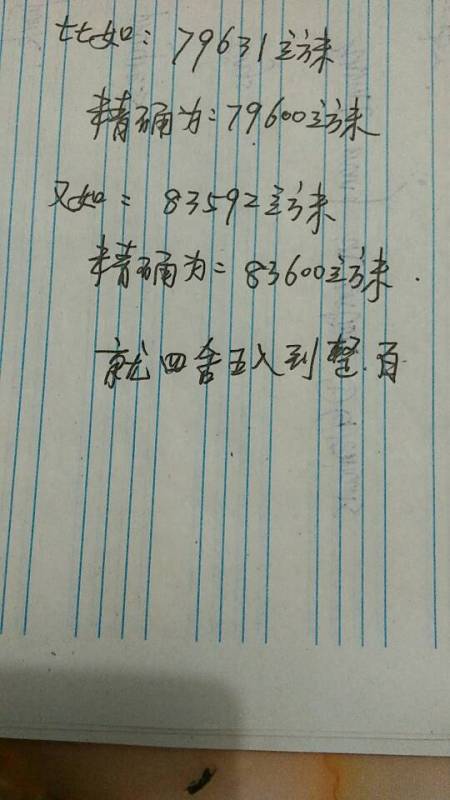 比如：79631立方米
精确为：79600立方米
又如：83592立方米
精确为：83600立方米.
就四舍五入到整百